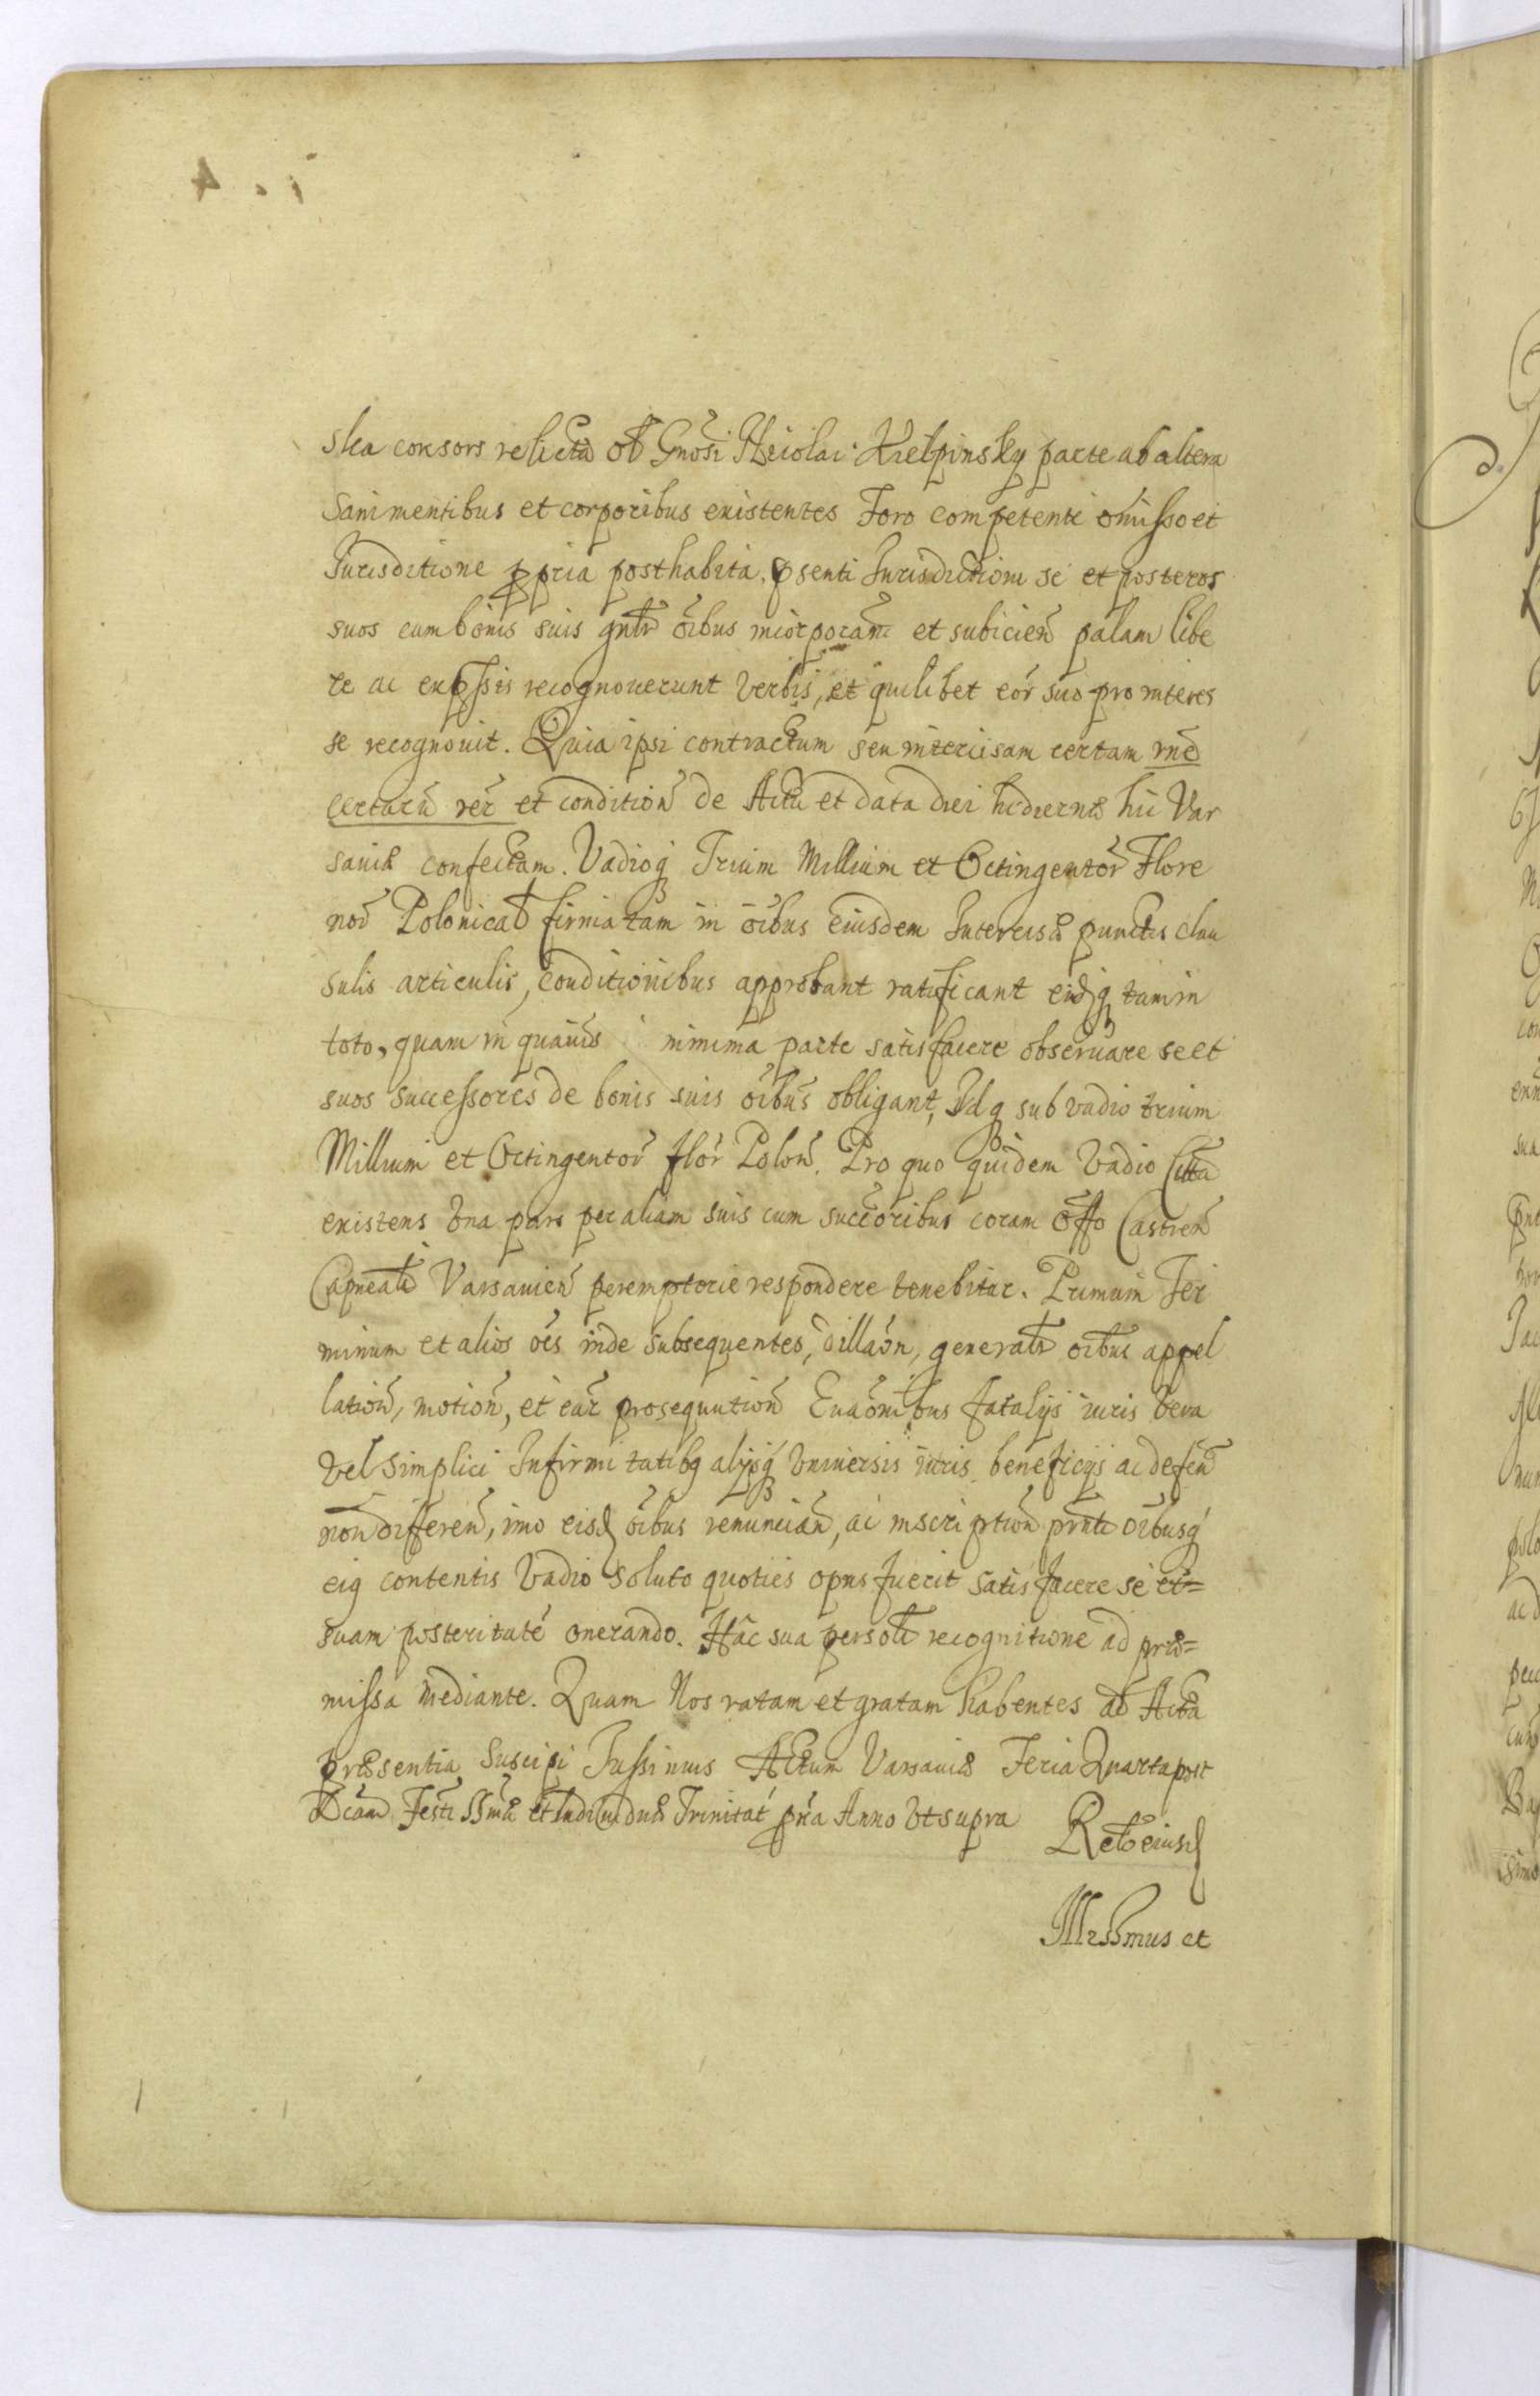 ska consors relicta ol Gnosi Nicolai Kielpinsky parte ab altera
Sani mentibus et corporibus existentes Foro competenti omisso et
Jurisditione ppria posthabita, psenti Jurisdictioni se et posteros
suos cum bonis suis gnlr oibus incorporan et subicien palam libe
re ac expssis recognouerunt verbis, et quilibet eor suo pro interes
se recognouit. Quia ipsi contractum seu intercisam certam rne
certaru rer et condition de Actu et data diei hodiernæ hic Var
saviæ confectam. Vadioq Trium Millium et Octingentor Flore
nor Polonical firmatam in oibus eiusdem Intercisæ punctis clau
sulis articulis, conditionibus approbant ratificant eidq tam in
toto, quam in quauis minima parte satisfacere obseruare se et
suos successores de bonis suis oibus obligant, Idq sub vadio trium
Millium et Octingentor flor Polon. Pro quo quidem Vadio Citta
existens Vna pars per aliam suis cum succoribus coram Offo Castren
Capneali Varsavien peremptorie respondere tenebitur. Primum Ter
minum et alios oes inde subsequentes, dillaon, generalr oibus appel
lation, motion, et ear prosequution Euaonibus fatalijs iuris vera
vel simplici Infirmitatibq alijsq Vniuersis iuris beneficijs ac defen
non differen, imo eisd oibus renuncian, ac inscription pnti oibusq
eiq contentis Vadio soluto quoties opus fuerit satisfacere se et=
suam posteritate onerando. Hac sua persoli recognitione ad præ=
missa mediante. Quam Nos ratam et gratam habentes ad Acta
præsentia Suscipi Jussimus Actum Varsaviæ Feria Quarta post
Dcam Festi SSmæ et Indiuiduæ Trinitat pria Anno Vt supra
Rel eiusd
Illrssmus et